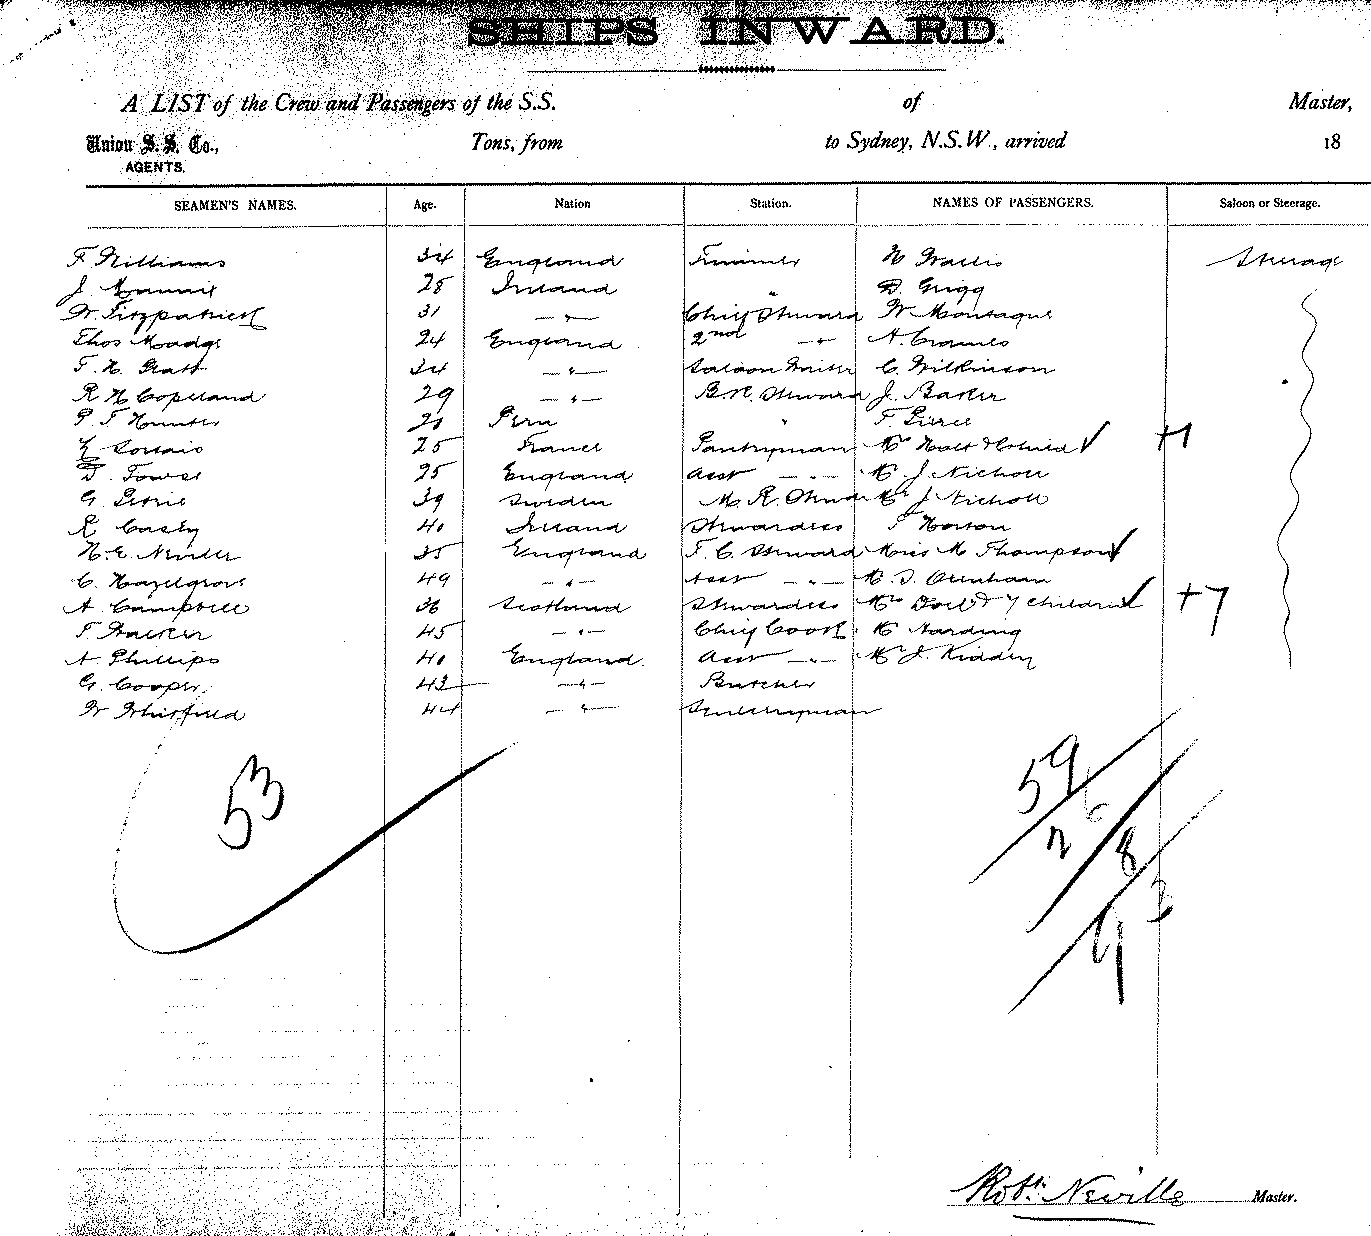 SHIPS INWARD.
A LIST of the Crew and Passengers of the S.S. of Master,
Union S. S. Co., Tons, from to Sydney, N.S.W., arrived 18
AGENTS.
SEAMEN'S NAMES. Age. Nation Station. NAMES OF PASSENGERS. Saloon or Steerage.
F Williams 34 England Trimmer W Wallis Steerage
J. 28 Ireland " D. Grigg
W. Fitzpatrick 31 — " — Chief Steward W Montague
Thos Madge 24 England 2nd — " A. Craines
T. H. Gratt 34 — " — Saloon Waiter C. Wilkinson
R H Copeland 29 — " — B.R. Steward J. Baker
P. T. Hunter 21 Peru " F. Pierce
25 France Pantryman Mrs Holt & Child +1
D. Towse 25 England Asst — " — Mr J Nicholl
G. Petrie 39 Sweden M. R. Steward Mrs J Nicholl
R Casey 40 Ireland Stewardess T Horton
H. E. Neville 35 England F. C. Steward Miss M Thompson
C. Hazelgrove 49 — " — Asst — " — Mr T.
A. Campbell 36 Scotland Stewardess Mrs & 7 Children +7
T Walker 45 — " — Chief Cook Mr Harding
A Phillips 40 England Asst — " — Mr J. Kidden
G. Cooper 42 — " — Butcher
W Whitfield 44 — " — Sculleryman
53
59
6
2
8
3
9
Robt. Neville Master.